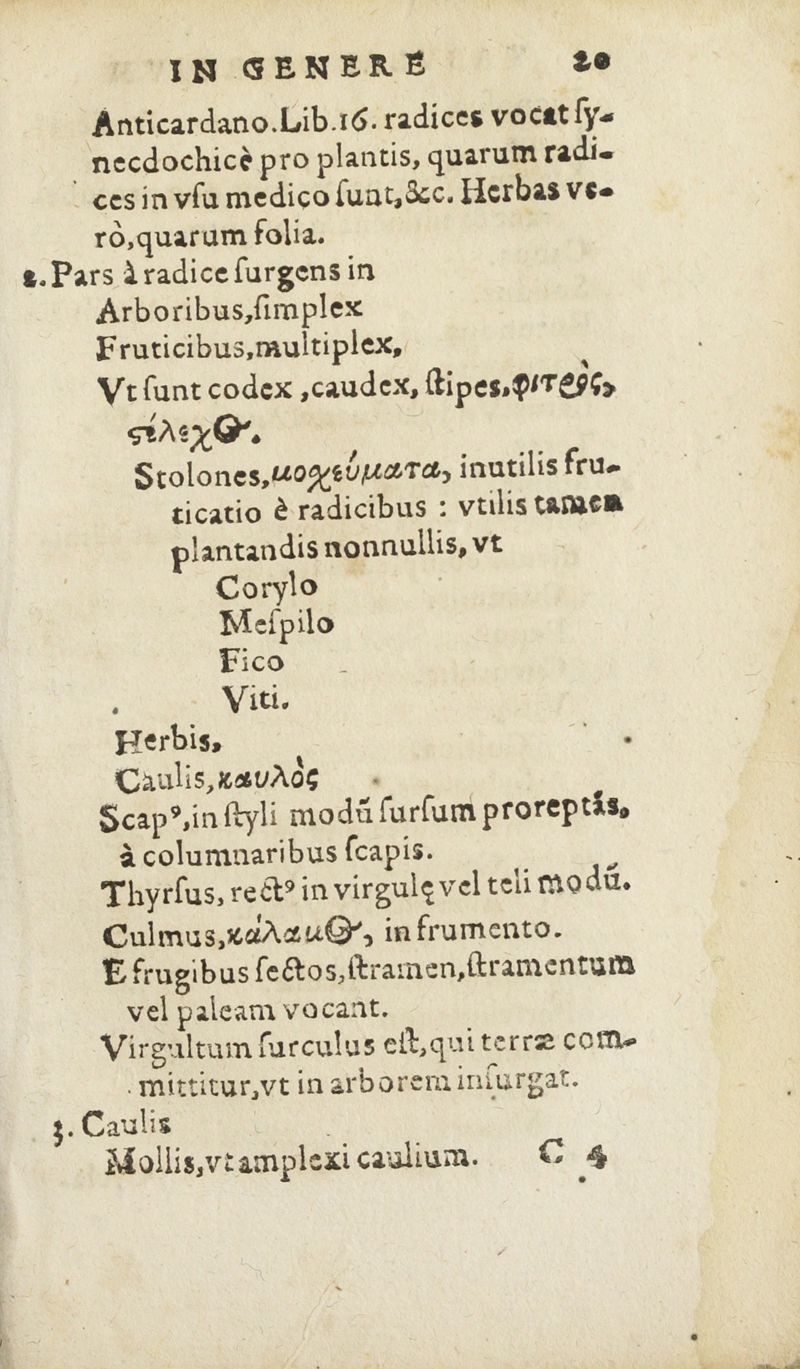 IN GENERE 20
Anticardano.Lib.16. radices vocat ſy-
necdochicè pro plantis, quarum radi-
ces in vſu medico ſunt,&c. Herbas ve-
rò,quarum folia.
2.Pars à radice ſurgens in
Arboribus,ſimplex
Fruticibus,multiplex,
Vt ſunt codex ,caudex, ſtipes,φιτρὸς,
στέλεχος.
Stolones,μοχεύματα, inutilis fru-
ticatio è radicibus : vtilis tamen
plantandis nonnullis, vt
Corylo
Meſpilo
Fico
Viti.
Herbis,
Caulis,καυλὸς
Scapꝰ,in ſtyli modũ ſurſum proreptãs,
à columnaribus ſcapis.
Thyrſus, rectꝰ in virgulę vel teli modũ.
Culmus,κάλαμος, in frumento.
E frugibus ſectos,ſtramen,ſtramentum
vel paleam vocant.
Virgultum ſurculus eſt,qui terræ com-
mittitur,vt in arborem inſurgat.
3. Caulis
Mollis,vt amplexi caulium. C 4